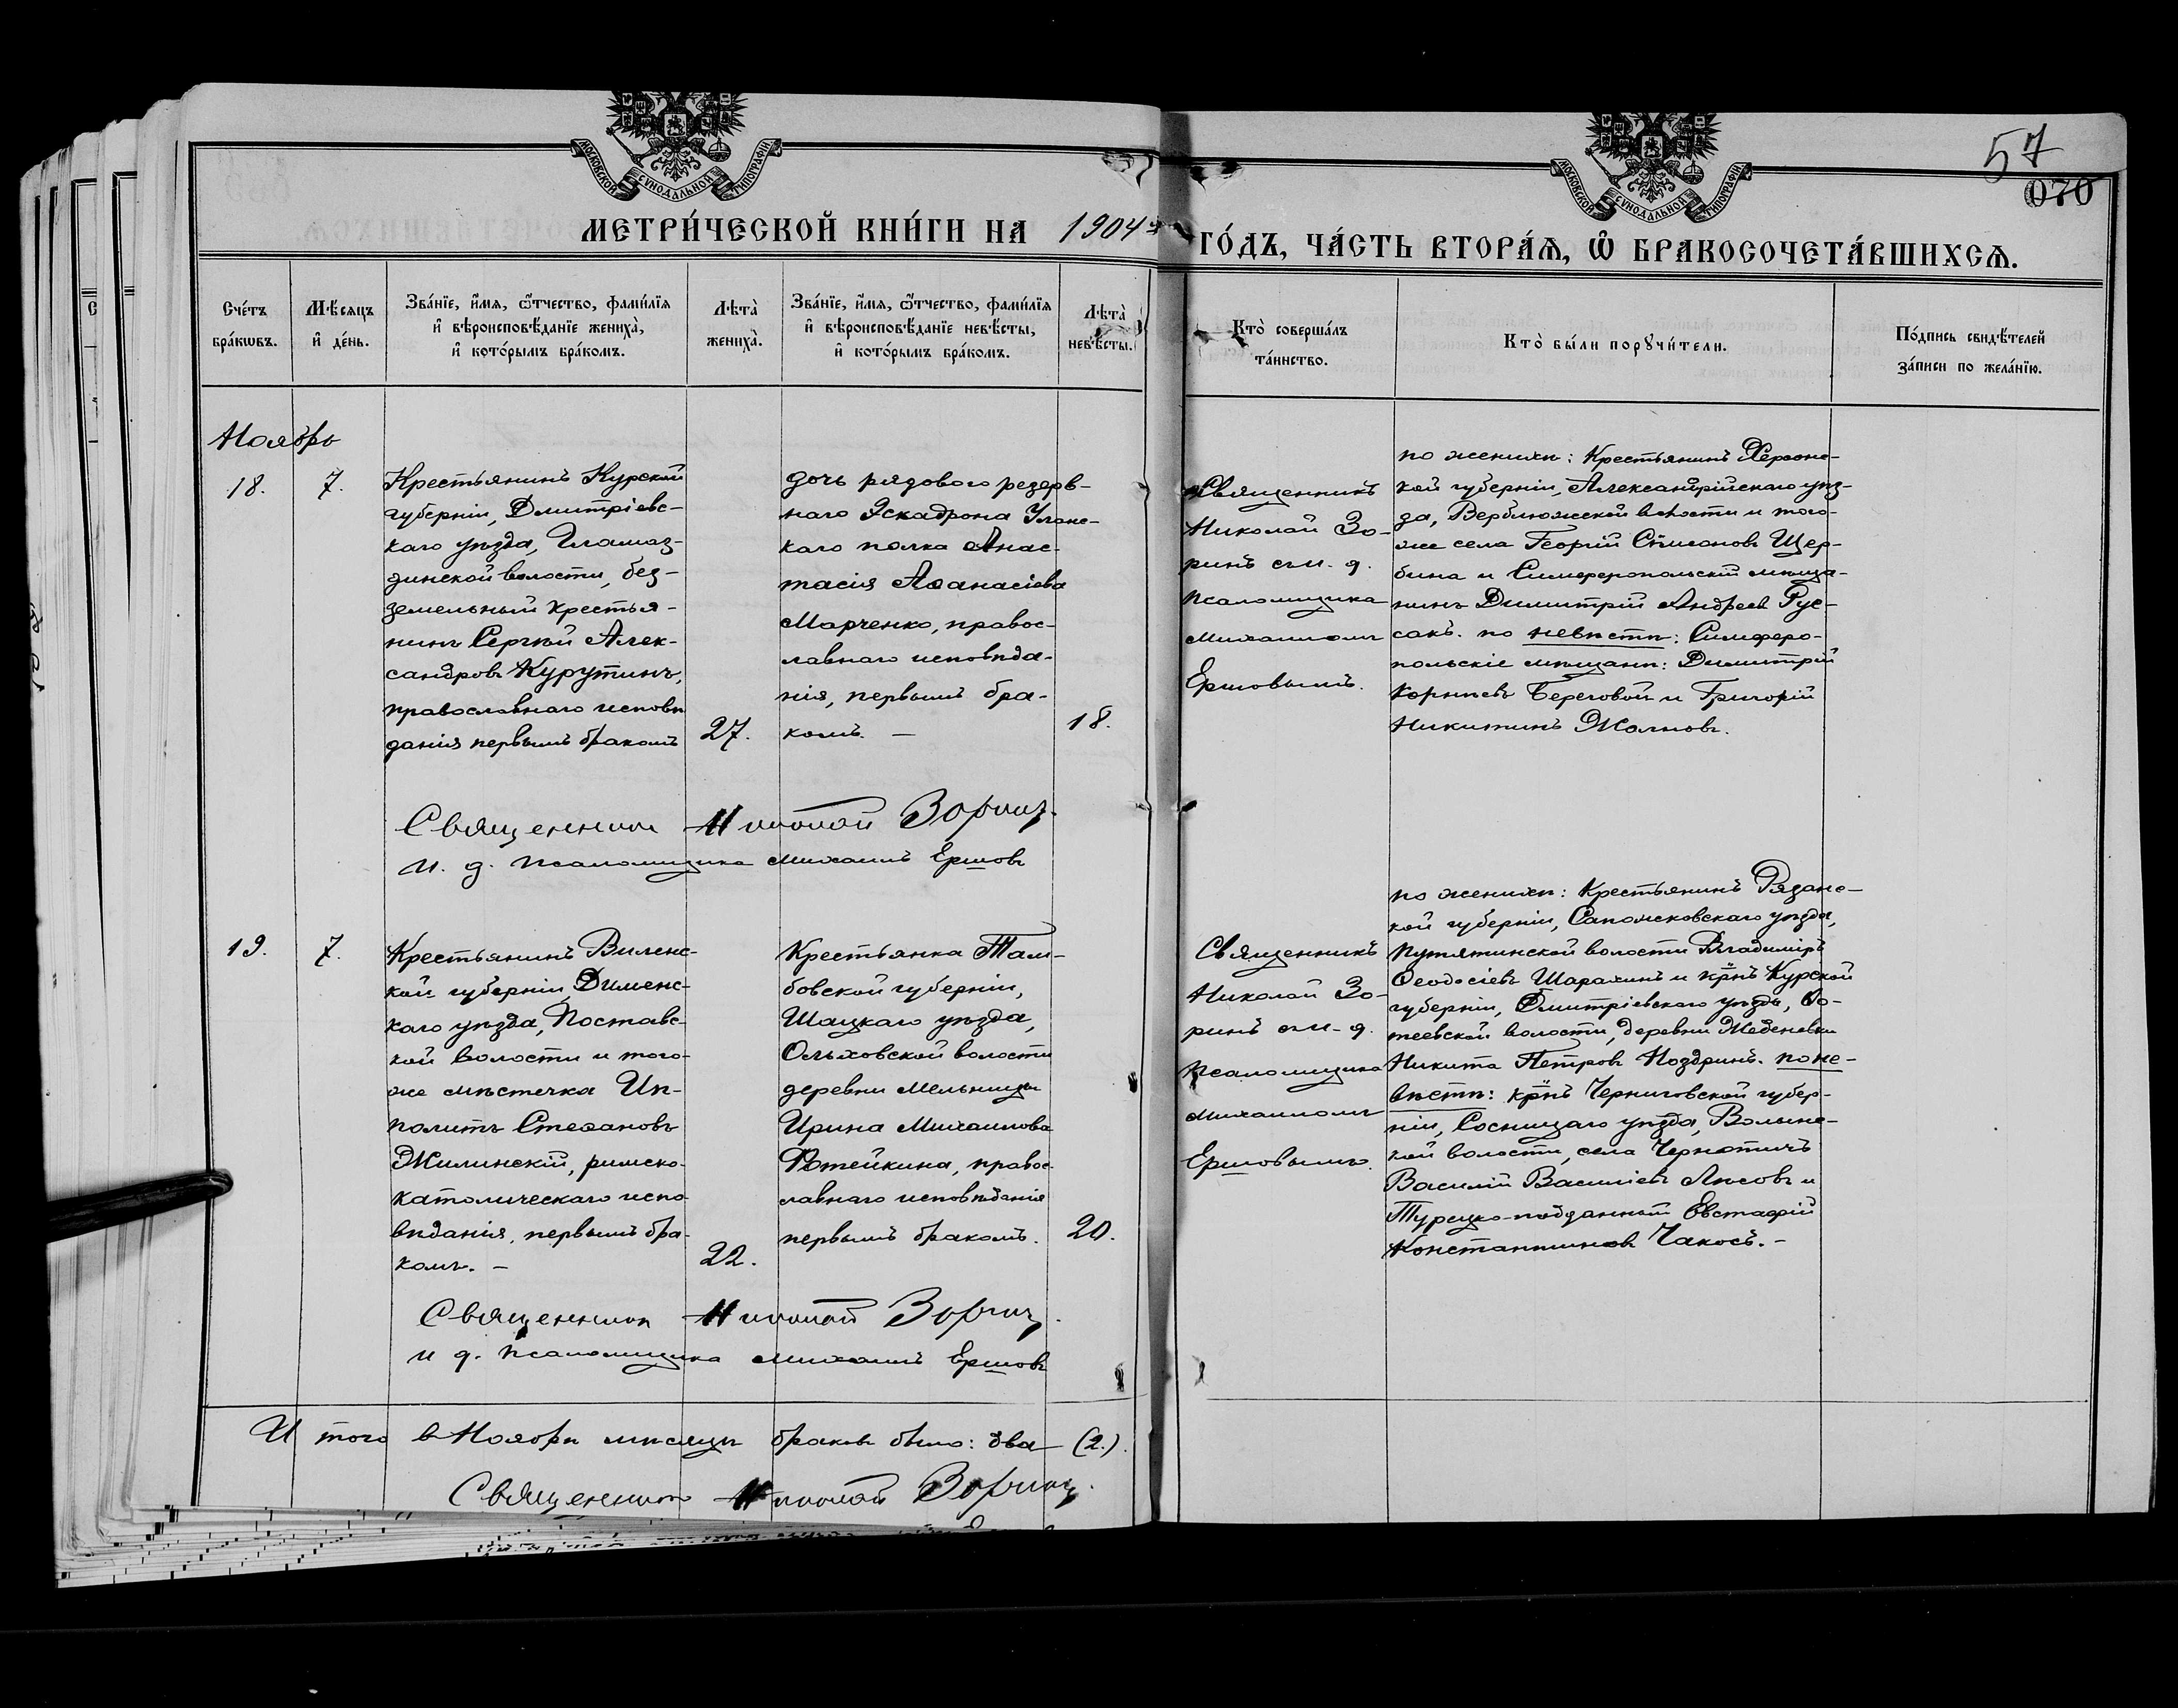 МОСКОВСКОЙ СѴНОДАЛЬНОЙ ТИПОГРАФІИ
МОСКОВСКОЙ СѴНОДАЛЬНОЙ ТИПОГРАФІИ
57
070
МЕТРИ́ЧЕСКОЙ КНИ́ГИ НА 1904й ГО́ДЪ, ЧА́СТЬ ВТОРА́Ѧ, Ѡ҆ БРАКОСОЧЕТА́ВШИХСѦ.
Сче́тъ
бра́кѡвъ.
Мѣ́сяцъ
и҆ де́нь.
Зва́нїе, и҆́мѧ, ѻ҆́тчество, фами́лїѧ
и҆ вѣроисповѣ́данїе жениха̀,
и҆ кото́рымъ бра́комъ.
Лѣта̀
жениха̀.
Зва́нїе, и҆́мѧ, ѻ҆́тчество, фами́лїѧ
и҆ вѣроисповѣ́данїе невѣ́сты,
и҆ кото́рымъ бра́комъ.
Лѣта̀
невѣ́сты.
Кто̀ соверша́лъ
та́инство.
Кто̀ бы́ли порꙋчи́тели.
По́дпись свидѣ́телей
за́писи по жела́нїю.
Ноябрь
18.
7.
Крестьянинъ Курской
губерніи, Дмитріевс-
каго уѣзда, Гламаз-
динской волости, без-
земельный крестья-
нинъ Сергѣй Алек-
сандровъ Курутинъ,
православнаго исповѣ
данія первымъ бракомъ
27.
дочь рядового резерв-
наго Эскадрона Уланс-
каго полка Анас-
тасія Аѳанасіева
Марченко, правос-
лавнаго исповѣда-
нія, первымъ бра-
комъ. —
18.
Священникъ
Николай Зо-
ринъ съ и. д.
псаломщика
Михаиломъ
Ершовымъ.
по женихѣ: Крестьянинъ Херсонс-
кой губерніи, Александрійскаго уѣз-
да, Верблюжской волости и того-
же села Георгій Симоновъ Щер-
бина и Симферопольскій мѣща-
нинъ Димитрій Андреевъ Рус-
сакъ. по невѣстѣ: Симферо-
польскіе мѣщане: Димитрій
Корнѣевъ Береговой и Григорій
Никитинъ Жолновъ.
Священникъ Николай Зоринъ.
И. д. псаломщика Михаилъ Ершовъ
19.
7.
Крестьянинъ Виленс-
кой губерніи, Дименс-
каго уѣзда, Поставс-
кой волости и того-
же мѣстечка Ип-
политъ Стефановъ
Жилинскій, римско-
католическаго испо-
вѣданія, первымъ бра-
комъ. —
22.
Крестьянка Там-
бовской губерніи,
Шацкаго уѣзда,
Ольховской волости
деревни Мельницы
Ирина Михаилова
Фотейкина, правос
лавнаго исповѣданія
первымъ бракомъ.
20.
Священникъ
Николай Зо-
ринъ съ и. д.
псаломщика
Михаиломъ
Ершовымъ.
по женихѣ: Крестьянинъ Рязанс-
кой губерніи, Сапожковскаго уѣзда,
Путятинской волости Владиміръ
Ѳеодосіевъ Шарахинъ и крнъ Курской
губерніи, Дмитріевскаго уѣзда, Фо-
теевской волости, деревни Меденевки
Никита Петровъ Ноздринъ. по не-
вѣстѣ: крнъ Черниговской губер-
ніи, Сосницкаго уѣзда, Волынс-
кой волости, села Чернотичъ
Василій Василіевъ Лѣсовъ и
Турецко-подданный Евстафій
Константиновъ Чакосъ. —
Священникъ Николай Зоринъ.
и д. псаломщика Михаилъ Ершовъ
И того въ Ноябрѣ мѣсяцѣ браковъ было: два (2.).
Священникъ Николай Зоринъ.